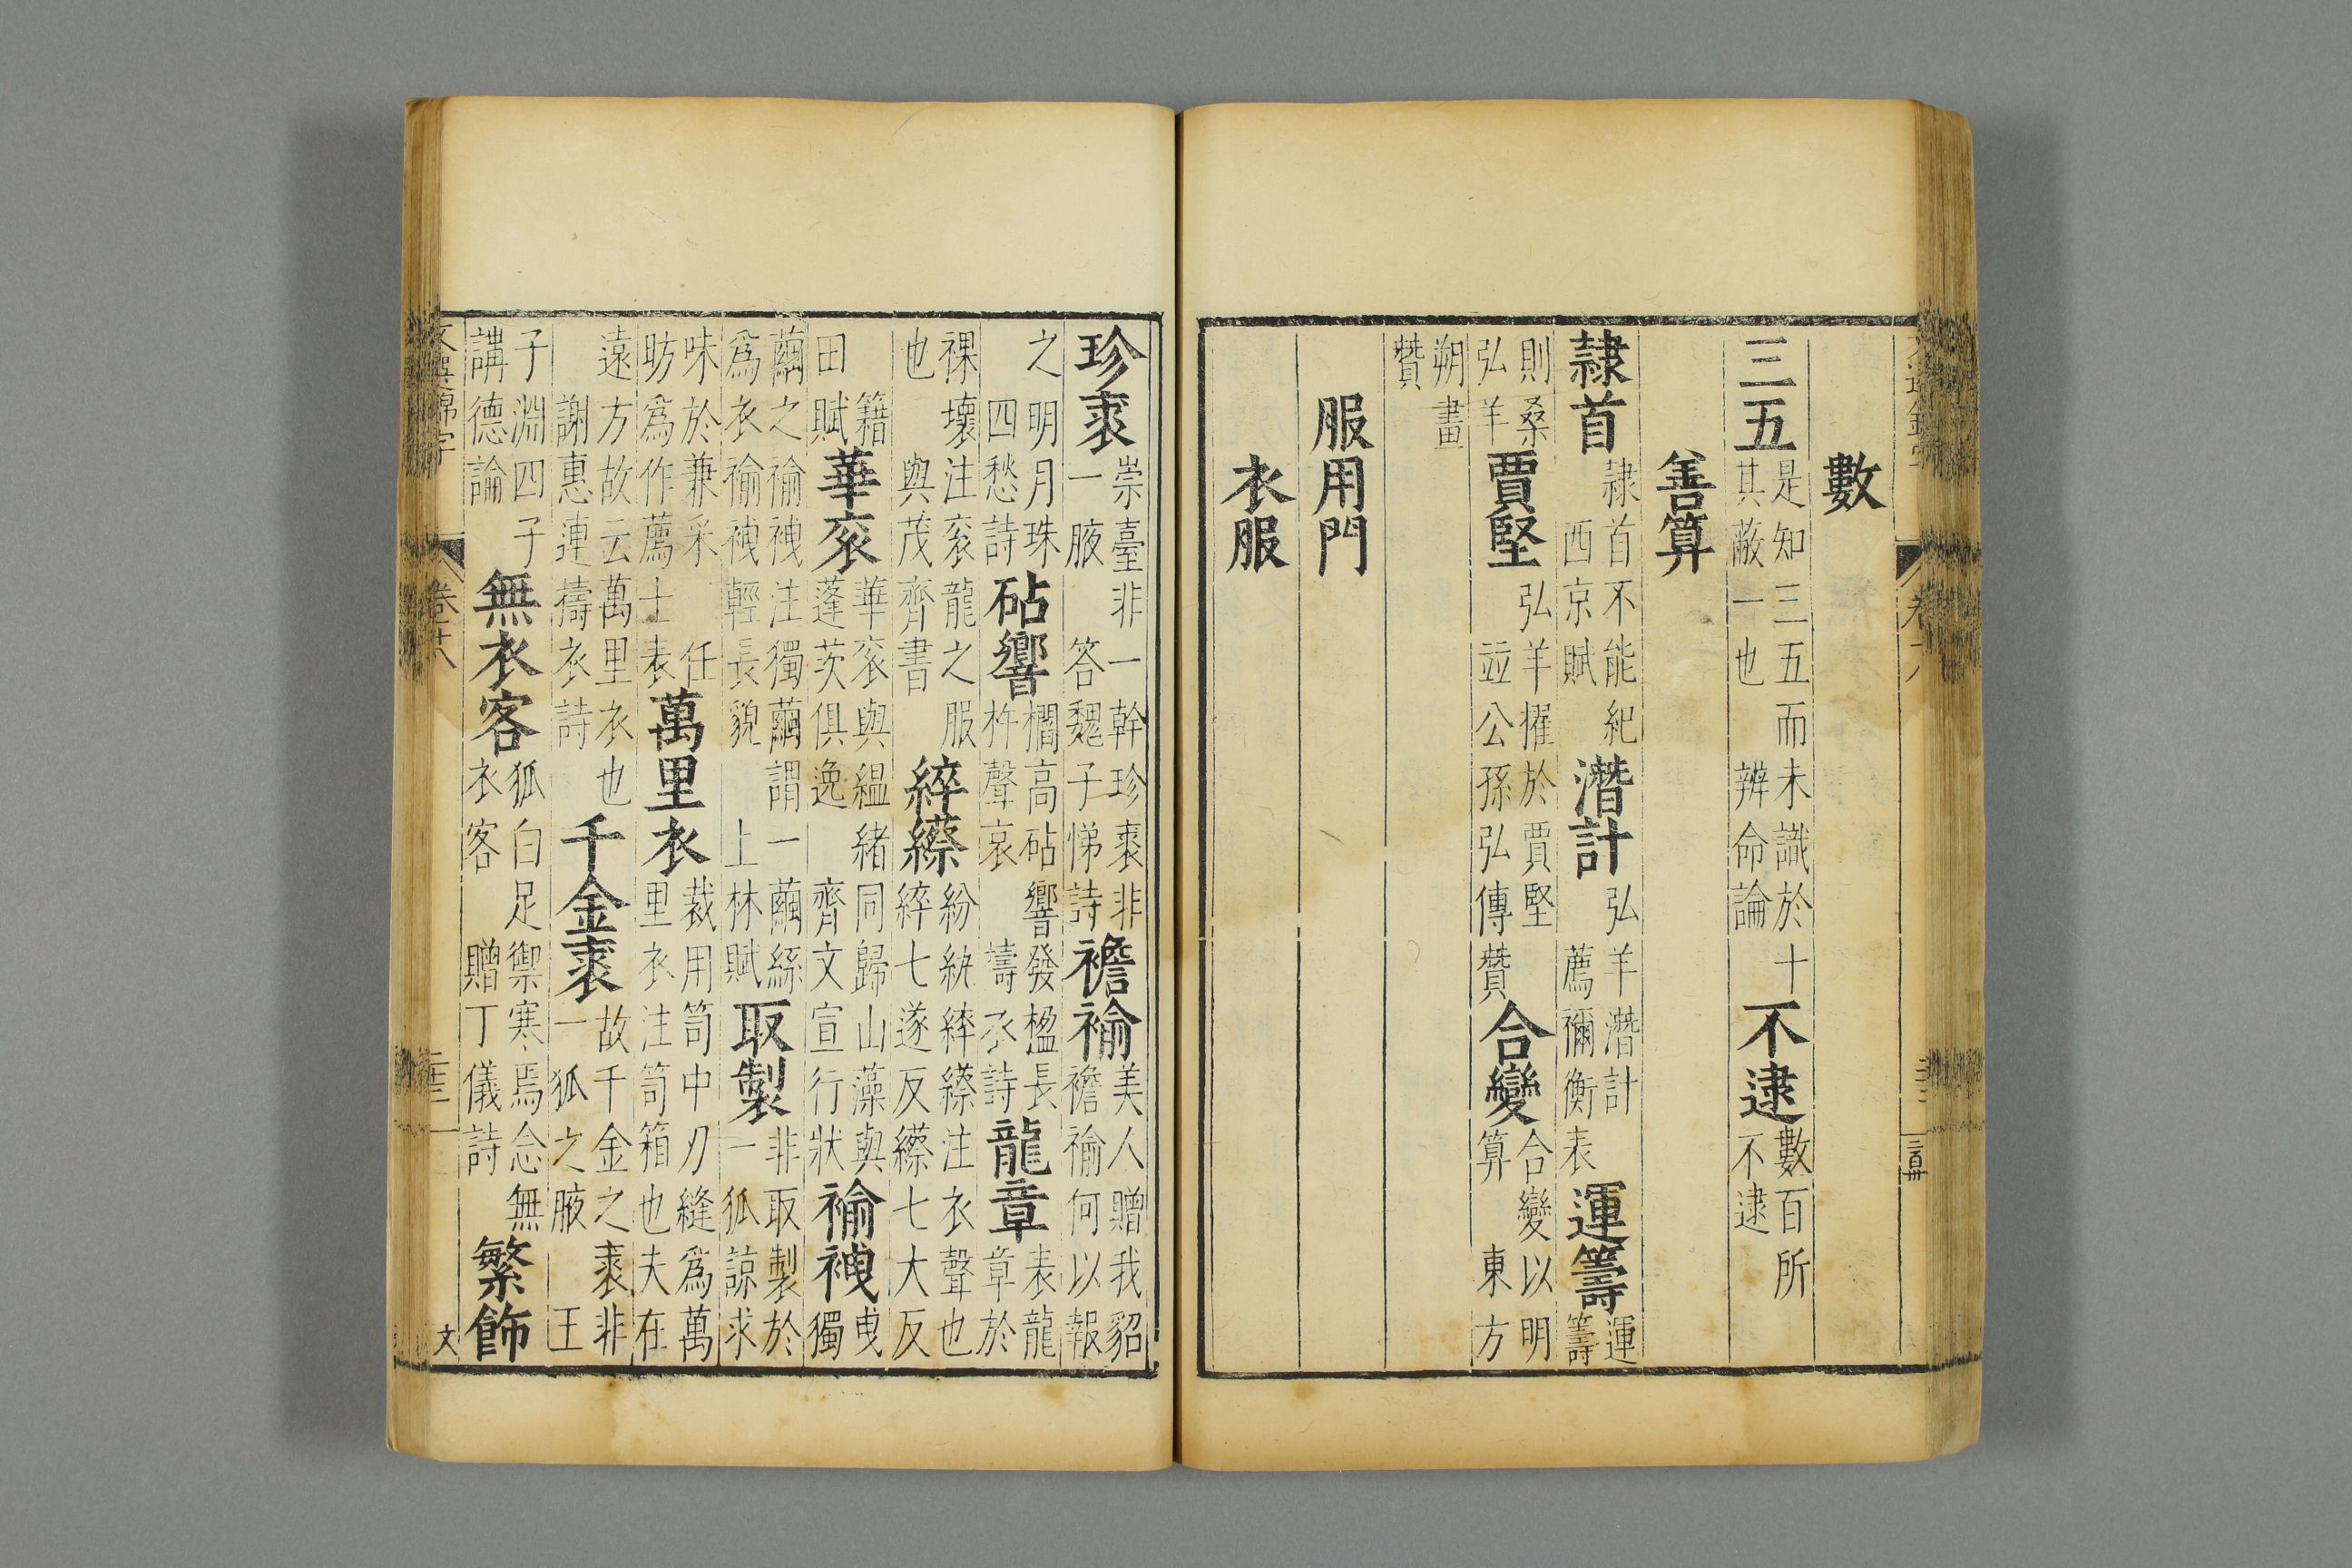 數
三五是知三五而未識於十其蔽一也辨命論不逮數百所不逮
善算
隷首隷首不能紀西京賦潛計弘羊潛計薦禰衡表運籌運籌
則桑弘羊賈堅弘羊擢於賈堅並公孫弘傳贊合變合變以明算東方
朔畫贊
服用門
衣服
珍裘崇臺非一幹珍裘非一腋答魏子悌詩襜褕美人贈我貂襜褕何以報
之明月珠四愁詩砧響櫩高砧響發楹長杵聲哀擣衣詩龍章表龍章於
裸壤注衮龍之服也與茂齊書綷縩紛紈綷縩注衣聲也綷七遂反縩七大反
籍田賦華衮華衮與緼緒同歸山藻與蓬茨俱逸齊文宣行狀褕袣曳獨
繭之褕袣注獨繭謂一繭絲爲衣褕袣輕長貌上林賦取製非取製於一狐諒求
味於兼采任昉爲作薦士表萬里衣裁用笥中刀縫爲萬里衣注笥箱也夫在
遠方故云萬里衣也謝惠連擣衣詩千金裘故千金之裘非一狐之腋王
子淵四子講德論無衣客狐白足禦寒焉念無衣客贈丁儀詩繁飾
文